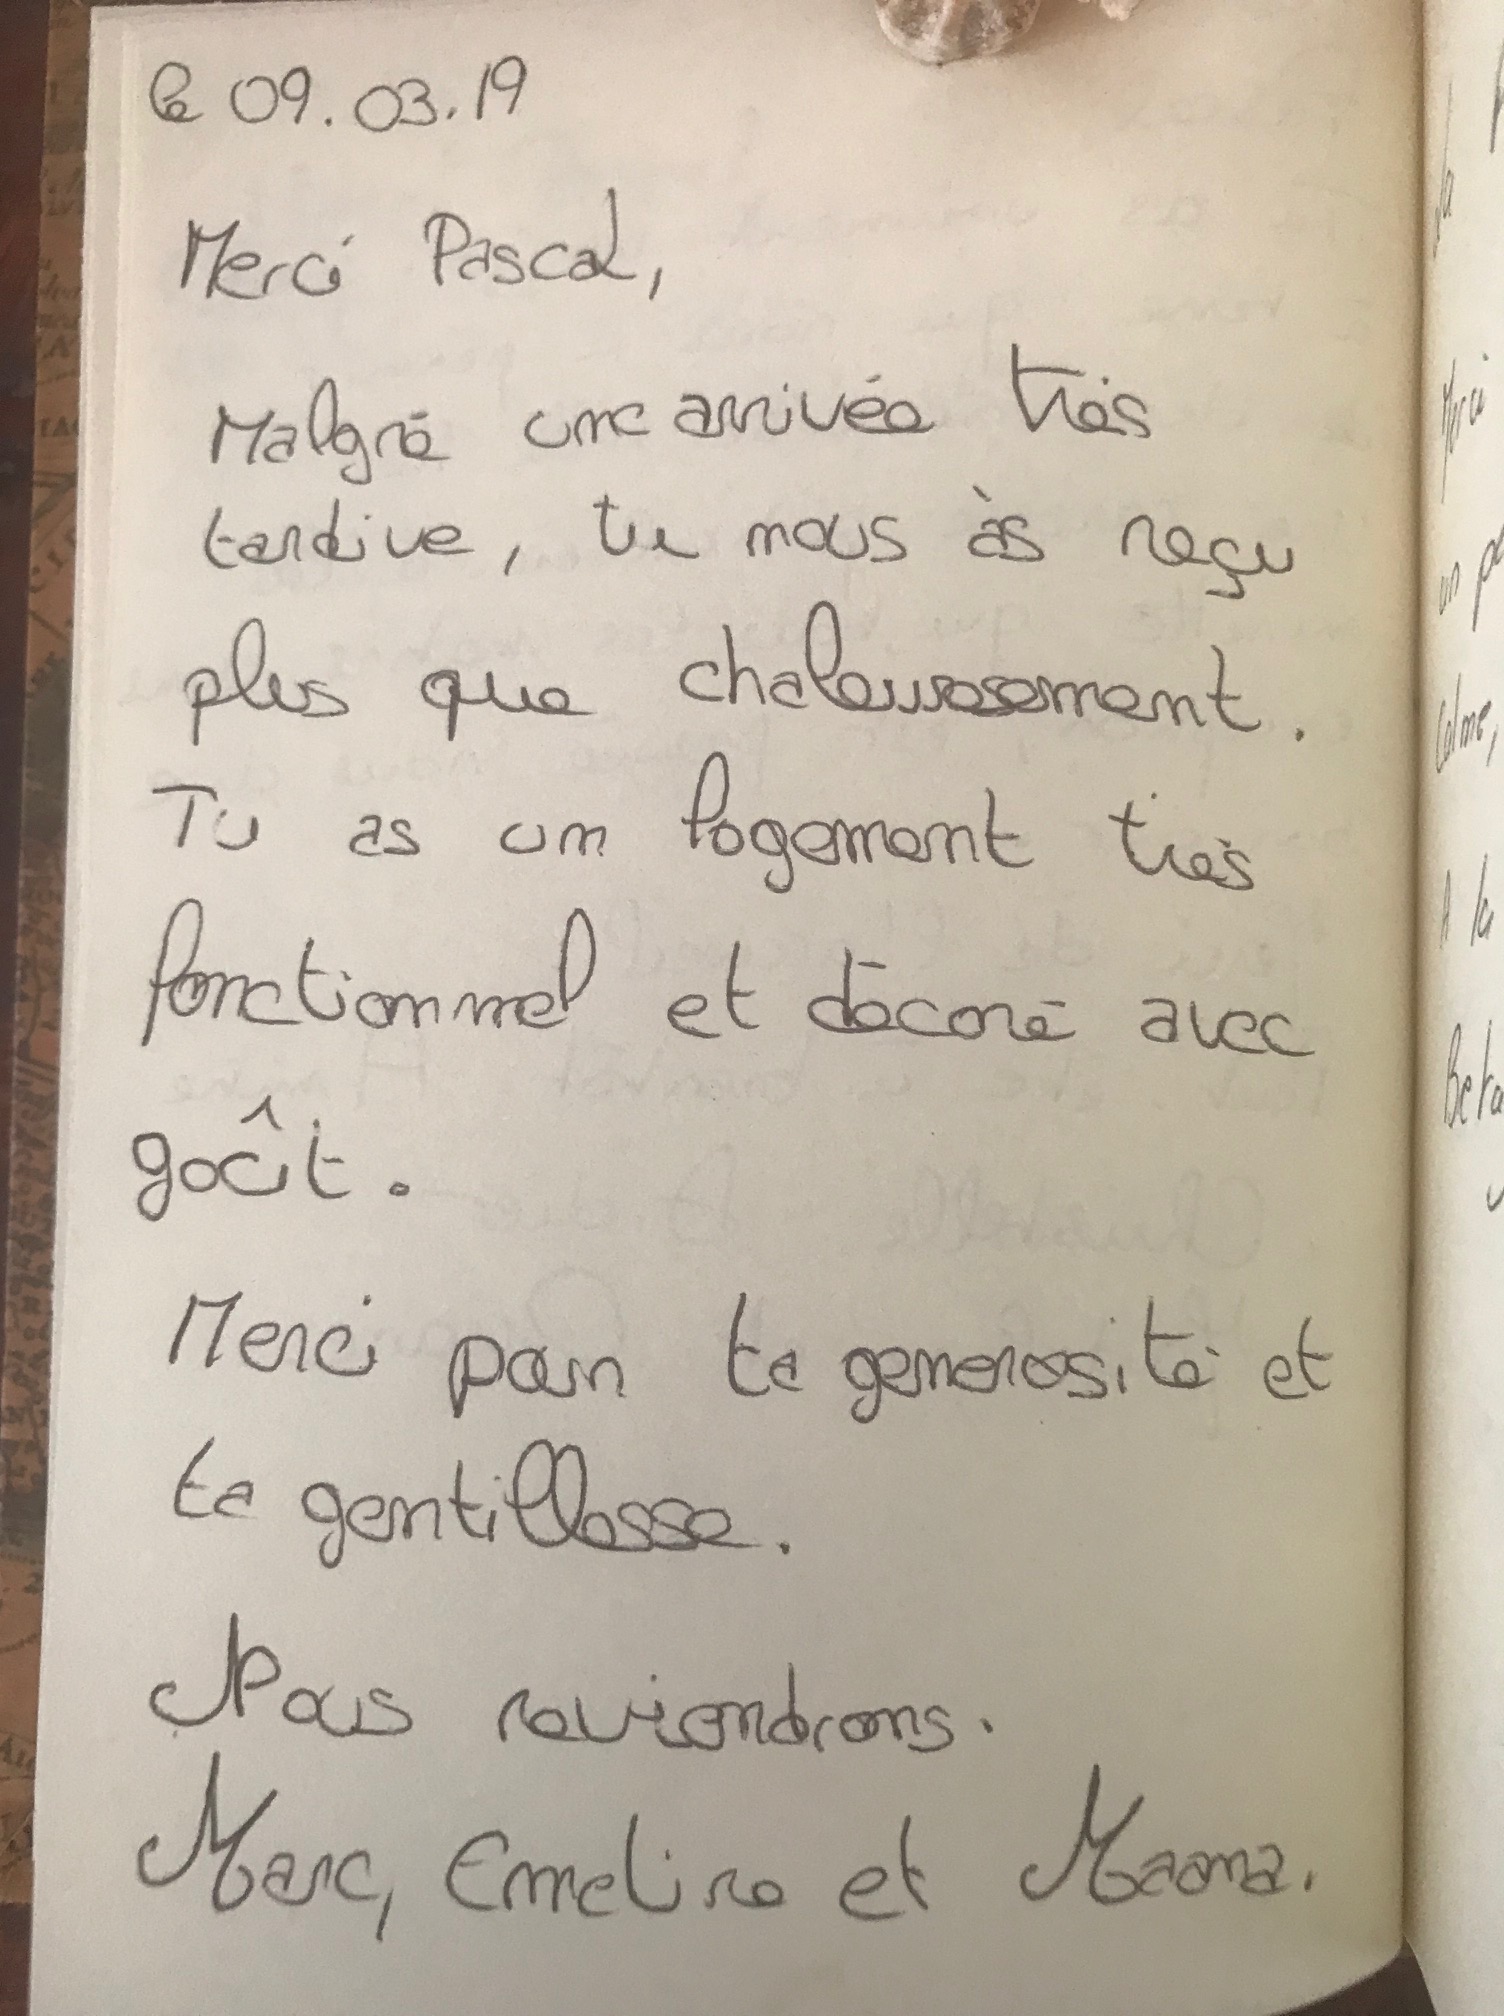 le 09.03.19
Merci Pascal,
Malgré une arrivée très
tardive, tu nous às reçu
plus que chaleureusement.
Tu as un logement très
fonctionnel et décoré avec
goût.
Merci pour ta generosité et
ta gentillesse.
Nous reviendrons.
Marc, Emeline et
la
Merci
un
Calme,
A la